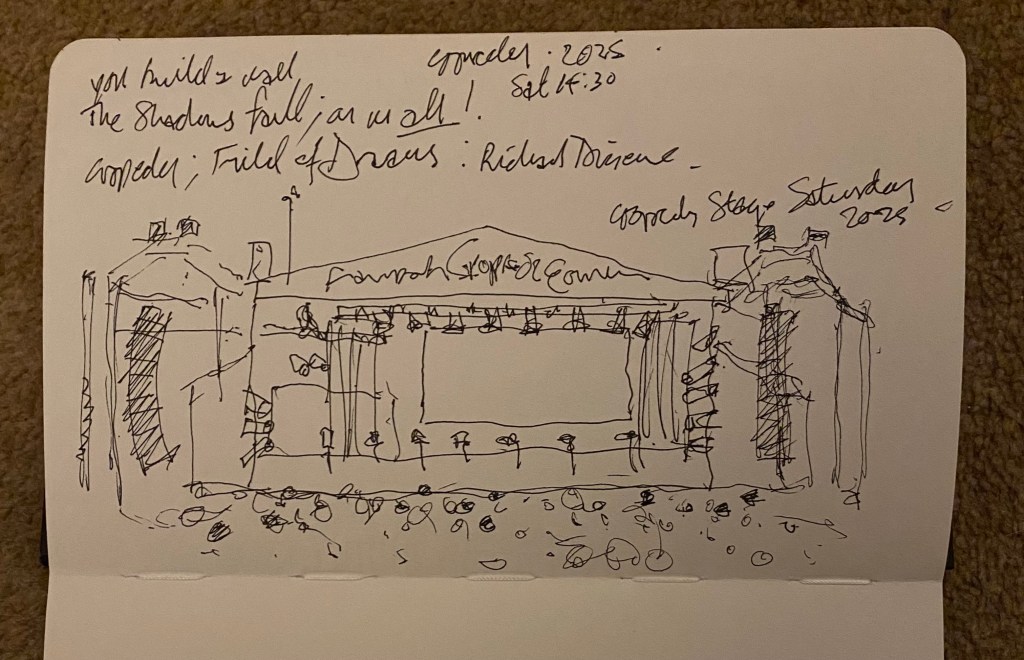 you build a wall,
Cropredy. 2025.
Sat 14:30
The Shadows fall; on us all!
Cropredy; Field of Dreams: Richard
Cropredy Stage Saturday
2025